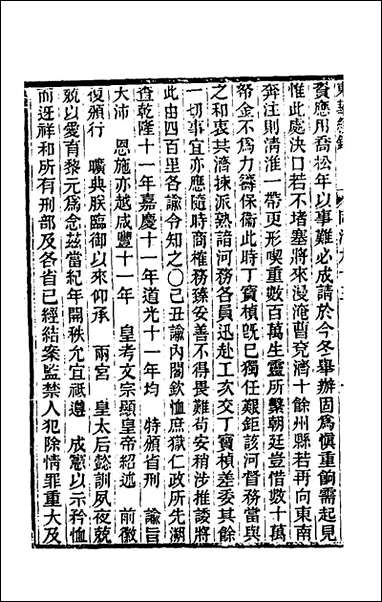 東華續錄　同治九十三
責應用喬松年以事難必成請於今冬舉辦固爲愼重餉需起見
惟此處決口若不堵塞將來浸淹曹兗濟十餘州縣若再向東南
奔注則淸淮一帶更形喫重數百萬生靈所繫朝廷豈惜數十萬
帑金不爲力籌保衞此時丁寶楨旣已獨任艱鉅該河督務當與
之和衷共濟揀派熟諳河務各員迅赴工次交丁寶楨差委其餘
一切事宜亦應隨時商榷務臻妥善不得畏難苟安稍涉推諉將
此由四百里各諭令知之○己丑諭內閣欽恤庶獄仁政所先溯
查乾隆十一年嘉慶十一年道光十一年均　特頒省刑　諭旨
大沛　恩施亦越咸豐十一年　皇考文宗顯皇帝紹述　前徽
復頒行　曠典朕臨御以來仰承　兩宮　皇太后懿訓夙夜兢
兢以愛育黎元爲念茲當紀年開秩允宜祗遵　成憲以示矜恤
而迓祥和所有刑部及各省已經結案監禁人犯除情罪重大及